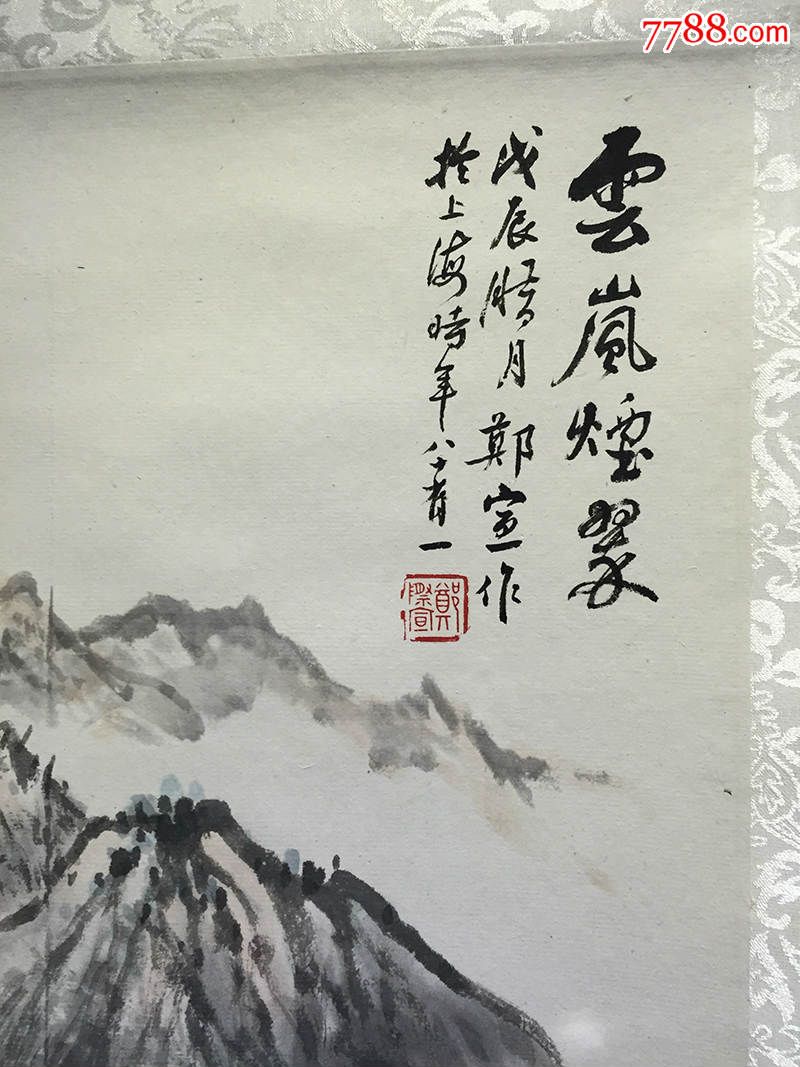 7788.com
雲嵐煙翠
戊辰腊月鄭宣作
於上海時年八十有一
鄭際宣